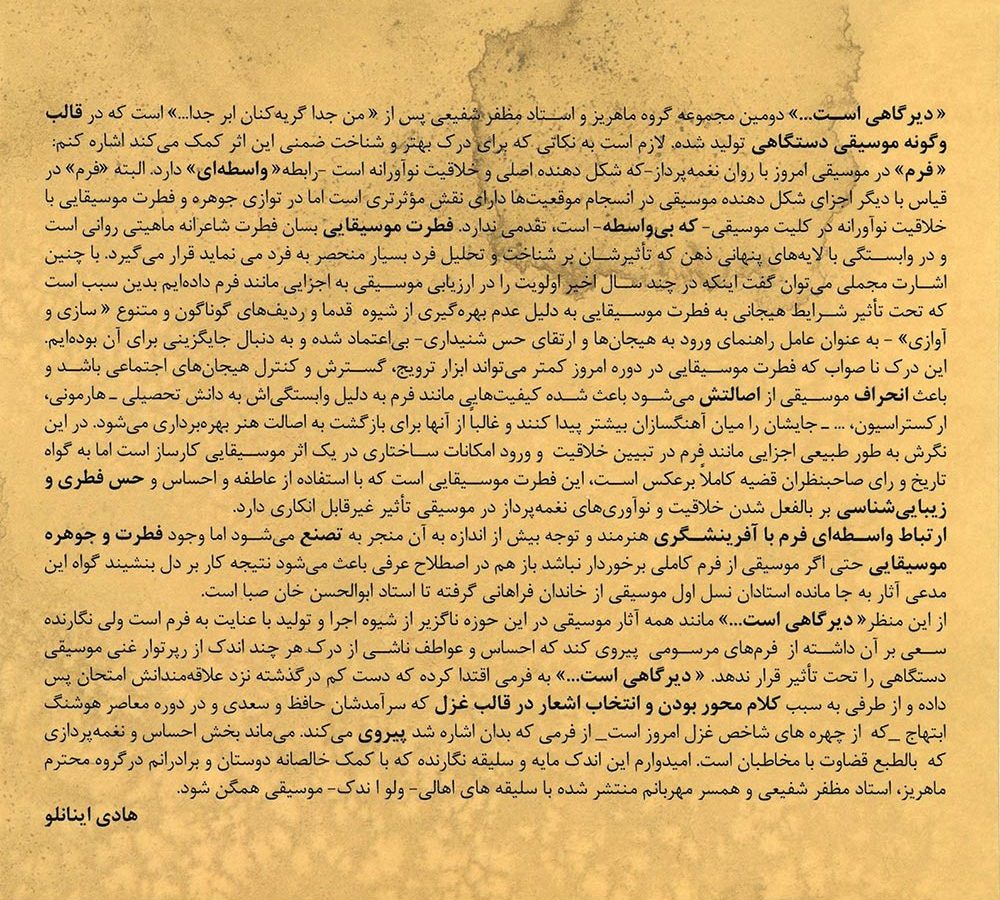 « دیرگاهی است...» دومین مجموعه گروه ماهریز و استاد مظفر شفیعی پس از « من جدا گریه‌کنان ابر جدا...» است که در قالب
وگونه موسیقی دستگاهی تولید شده. لازم است به نکاتی که برای درک بهتر و شناخت ضمنی این اثر کمک می‌کند اشاره کنم:
« فرم» در موسیقی امروز با روان نغمه‌پرداز-که شکل دهنده اصلی و خلاقیت نوآورانه است -رابطه« واسطه‌ای» دارد. البته «فرم» در
قیاس با دیگر اجزای شکل دهنده موسیقی در انسجام موقعیت‌ها دارای نقش مؤثرتری است اما در توازی جوهره و فطرت موسیقایی با
خلاقیت نوآورانه در کلیت موسیقی- که بی‌واسطه- است، تقدمی ندارد. فطرت موسیقایی بسان فطرت شاعرانه ماهیتی روانی است
و در وابستگی با لایه‌های پنهانی ذهن که تأثیرشان بر شناخت و تحلیل فرد بسیار منحصر به فرد می نماید قرار می‌گیرد. با چنین
اشارت مجملی می‌توان گفت اینکه در چند سال اخیر اولویت را در ارزیابی موسیقی به اجزایی مانند فرم داده‌ایم بدین سبب است
که تحت تأثیر شرایط هیجانی به فطرت موسیقایی به دلیل عدم بهره‌گیری از شیوه قدما و ردیف‌های گوناگون و متنوع « سازی و
آوازی» - به عنوان عامل راهنمای ورود به هیجان‌ها و ارتقای حس شنیداری- بی‌اعتماد شده و به دنبال جایگزینی برای آن بوده‌ایم.
این درک نا صواب که فطرت موسیقایی در دوره امروز کمتر می‌تواند ابزار ترویج، گسترش و کنترل هیجان‌های اجتماعی باشد و
باعث انحراف موسیقی از اصالتش می‌شود باعث شده کیفیت‌هایی مانند فرم به دلیل وابستگی‌اش به دانش تحصیلی ـ هارمونی،
ارکستراسیون، ... ـ جایشان را میان آهنگسازان بیشتر پیدا کنند و غالباً از آنها برای بازگشت به اصالت هنر بهره‌برداری می‌شود. در این
نگرش به طور طبیعی اجزایی مانند فرم در تبیین خلاقیت و ورود امکانات ساختاری در یک اثر موسیقایی کارساز است اما به گواه
تاریخ و رای صاحبنظران قضیه کاملاً برعکس است، این فطرت موسیقایی است که با استفاده از عاطفه و احساس و حس فطری و
زیبایی‌شناسی بر بالفعل شدن خلاقیت و نوآوری‌های نغمه‌پرداز در موسیقی تأثیر غیرقابل انکاری دارد.
ارتباط واسطه‌ای فرم با آفرینشگری هنرمند و توجه بیش از اندازه به آن منجر به تصنع می‌شود اما وجود فطرت و جوهره
موسیقایی حتی اگر موسیقی از فرم کاملی برخوردار نباشد باز هم در اصطلاح عرفی باعث می‌شود نتیجه کار بر دل بنشیند گواه این
مدعی آثار به جا مانده استادان نسل اول موسیقی از خاندان فراهانی گرفته تا استاد ابوالحسن خان صبا است.
از این منظر« دیرگاهی است...» مانند همه آثار موسیقی در این حوزه ناگزیر از شیوه اجرا و تولید با عنایت به فرم است ولی نگارنده
سعی بر آن داشته از فرم‌های مرسومی پیروی کند که احساس و عواطف ناشی از درک هر چند اندک از رپرتوار غنی موسیقی
دستگاهی را تحت تأثیر قرار ندهد. « دیرگاهی است...» به فرمی اقتدا کرده که دست کم درگذشته نزد علاقه‌مندانش امتحان پس
داده و از طرفی به سبب کلام محور بودن و انتخاب اشعار در قالب غزل که سرآمدشان حافظ و سعدی و در دوره معاصر هوشنگ
ابتهاج _که از چهره های شاخص غزل امروز است_ از فرمی که بدان اشاره شد پیروی می‌کند. می‌ماند بخش احساس و نغمه‌پردازی
که بالطبع قضاوت با مخاطبان است. امیدوارم این اندک مایه و سلیقه نگارنده که با کمک خالصانه دوستان و برادرانم درگروه محترم
ماهریز، استاد مظفر شفیعی و همسر مهربانم منتشر شده با سلیقه های اهالی- ولو ا ندک- موسیقی همگن شود.
هادی اینانلو